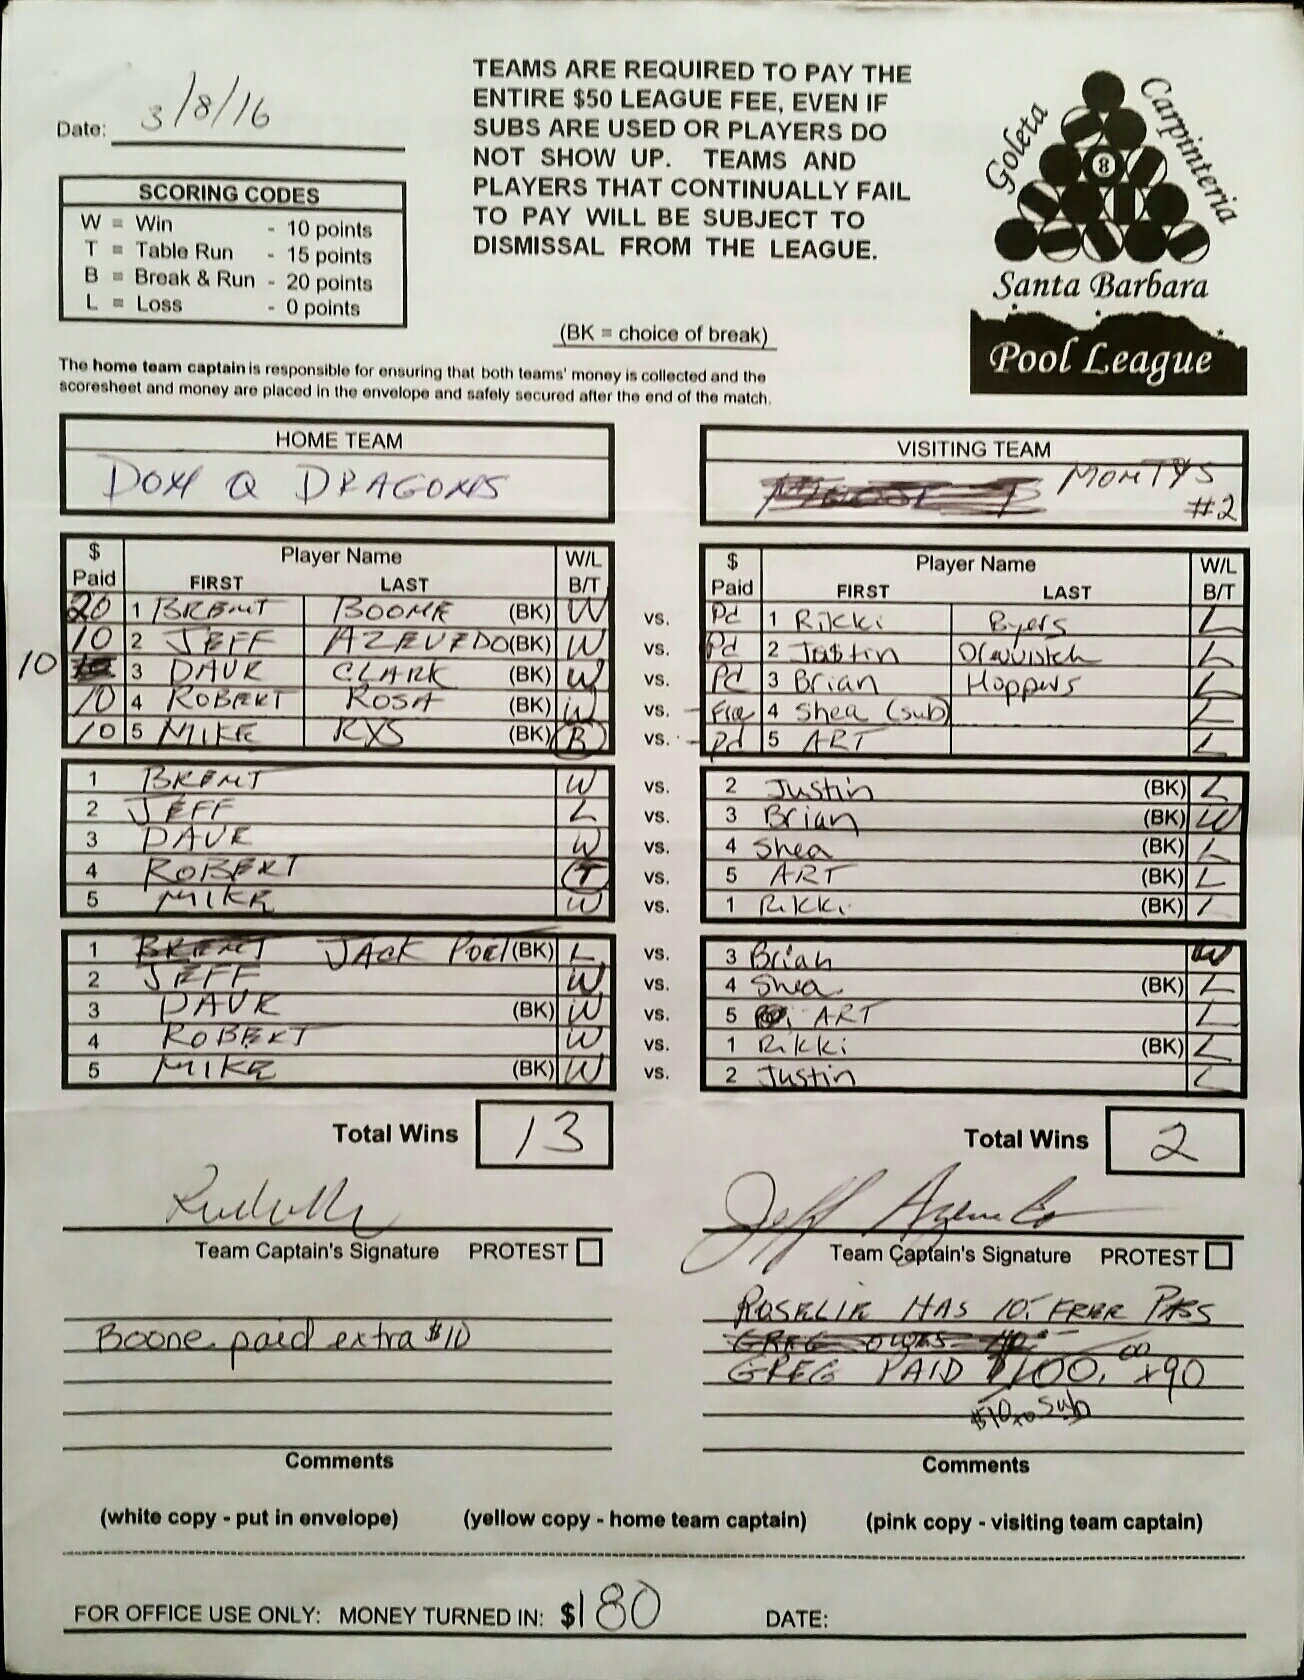 Date: 3/8/16
TEAMS ARE REQUIRED TO PAY THE
ENTIRE $50 LEAGUE FEE, EVEN IF
SUBS ARE USED OR PLAYERS DO
NOT SHOW UP. TEAMS AND
PLAYERS THAT CONTINUALLY FAIL
TO PAY WILL BE SUBJECT TO
DISMISSAL FROM THE LEAGUE.
(BK = choice of break)
SCORING CODES
W = Win - 10 points
T = Table Run - 15 points
B = Break & Run - 20 points
L = Loss - 0 points
Goleta
Carpinteria
8
Santa Barbara
Pool League
The home team captain is responsible for ensuring that both teams' money is collected and the
scoresheet and money are placed in the envelope and safely secured after the end of the match.
HOME TEAM
DON Q DRAGONS
VISITING TEAM
MONTYS
#2
$ Paid Player Name FIRST LAST W/L B/T
$ Paid Player Name FIRST LAST W/L B/T
20 1 BRENT BOONE (BK) W vs. Pd 1 Rikki Byers L
10 2 JEFF AZEVEDO (BK) W vs. Pd 2 Justin L
10 3 DAVE CLARK (BK) W vs. Pd 3 Brian Hoppers L
10 4 ROBERT ROSA (BK) W vs. Free 4 Shea (sub) L
10 5 MIKE (BK) B vs. Pd 5 ART L
1 BRENT W vs. 2 Justin (BK) L
2 JEFF L vs. 3 Brian (BK) W
3 DAVE W vs. 4 Shea (BK) L
4 ROBERT T vs. 5 ART (BK) L
5 MIKE W vs. 1 Rikki (BK) L
1 BRENT JACK POET (BK) L vs. 3 Brian W
2 JEFF W vs. 4 Shea (BK) L
3 DAVE (BK) W vs. 5 ART L
4 ROBERT W vs. 1 Rikki (BK) L
5 MIKE (BK) W vs. 2 Justin L
Total Wins 13
Total Wins 2
Jeff Azevedo
Team Captain's Signature PROTEST
Team Captain's Signature PROTEST
Boone paid extra $10
ROSELIE HAS 10.- FREE PASS
GREG OWES 40.-
GREG PAID $100.00 x90
$10 to Sub
Comments
Comments
(white copy - put in envelope) (yellow copy - home team captain) (pink copy - visiting team captain)
FOR OFFICE USE ONLY: MONEY TURNED IN: $180 DATE: